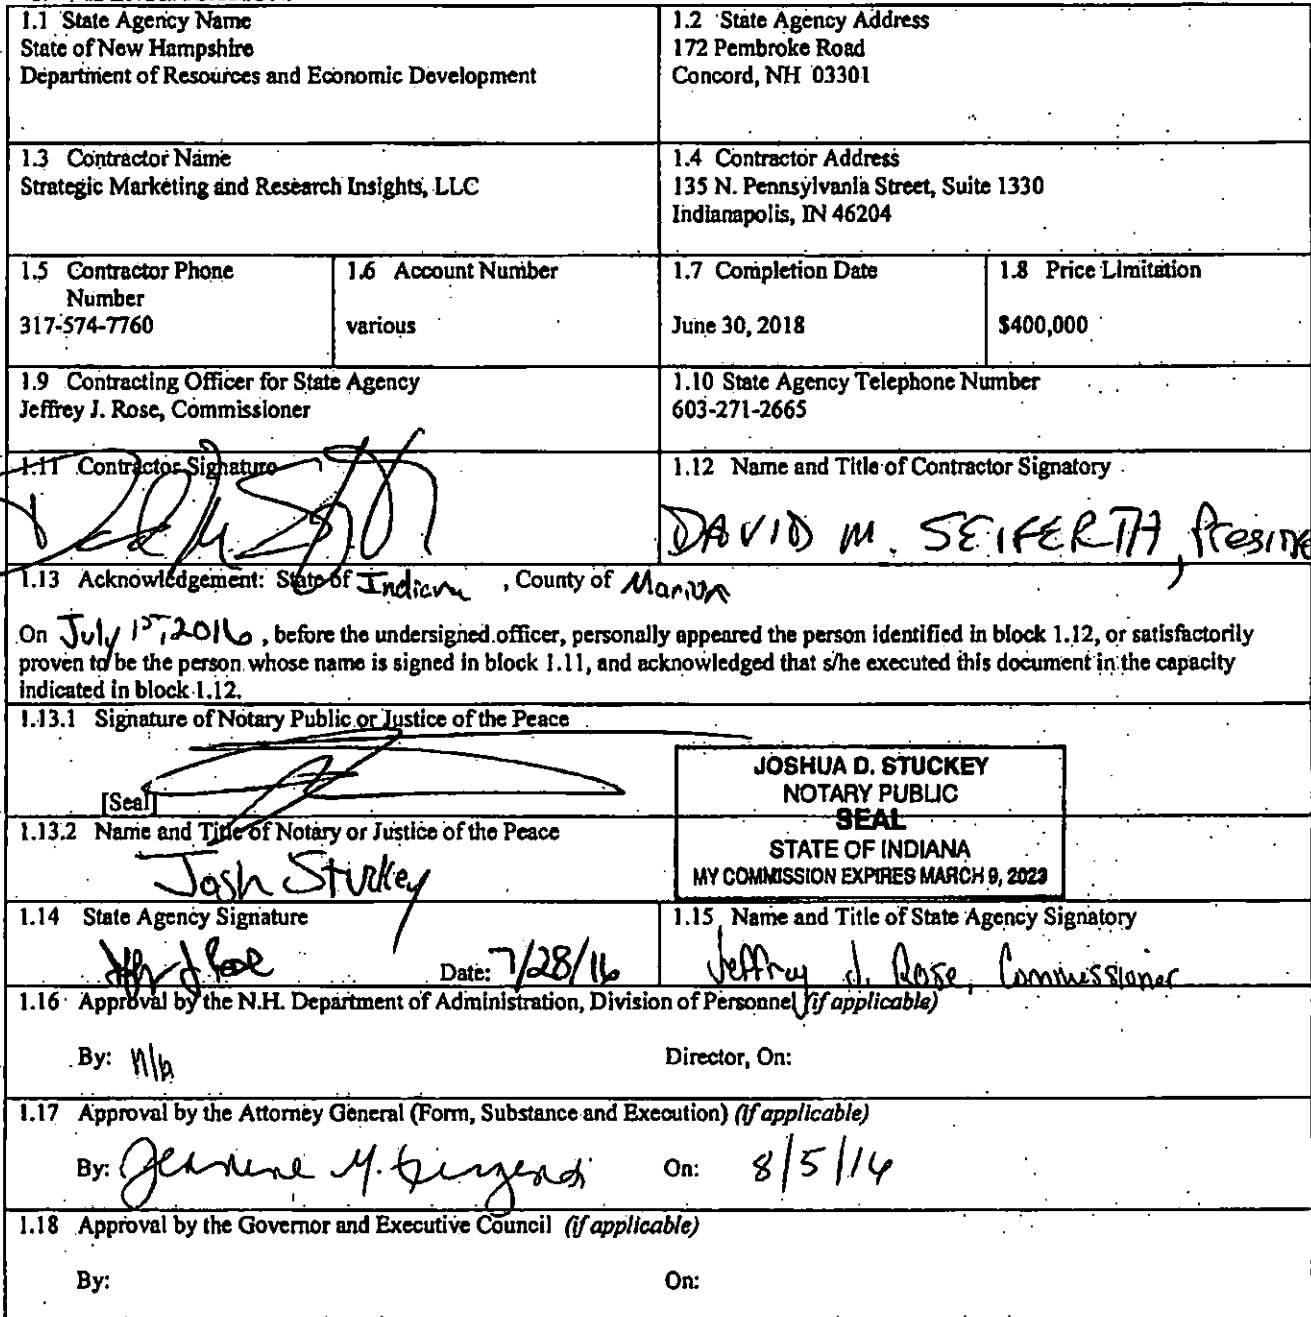 1.1 State Agency Name
State of New Hampshire
Department of Resources and Economic Development
1.2 State Agency Address
172 Pembroke Road
Concord, NH 03301
1.3 Contractor Name
Strategic Marketing and Research Insights, LLC
1.4 Contractor Address
135 N. Pennsylvania Street, Suite 1330
Indianapolis, IN 46204
1.5 Contractor Phone
Number
317-574-7760
1.6 Account Number
various
1.7 Completion Date
June 30, 2018
1.8 Price Limitation
$400,000
1.9 Contracting Officer for State Agency
Jeffrey J. Rose, Commissioner
1.10 State Agency Telephone Number
603-271-2665
1.11 Contractor Signature
1.12 Name and Title of Contractor Signatory
DAVID M. SEIFERTH, Preside
1.13 Acknowledgement: State of Indiana , County of Marion
On July 1st, 2016 , before the undersigned officer, personally appeared the person identified in block 1.12, or satisfactorily
proven to be the person whose name is signed in block 1.11, and acknowledged that s/he executed this document in the capacity
indicated in block 1.12.
1.13.1 Signature of Notary Public or Justice of the Peace
[Seal]
JOSHUA D. STUCKEY
NOTARY PUBLIC
SEAL
STATE OF INDIANA
MY COMMISSION EXPIRES MARCH 9, 2023
1.13.2 Name and Title of Notary or Justice of the Peace
Josh Stuckey
1.14 State Agency Signature
Date: 7/28/16
1.15 Name and Title of State Agency Signatory
Jeffrey J. Rose, Commissioner
1.16 Approval by the N.H. Department of Administration, Division of Personnel (if applicable)
By: n/a
Director, On:
1.17 Approval by the Attorney General (Form, Substance and Execution) (if applicable)
By:
On: 8/5/16
1.18 Approval by the Governor and Executive Council (if applicable)
By:
On: